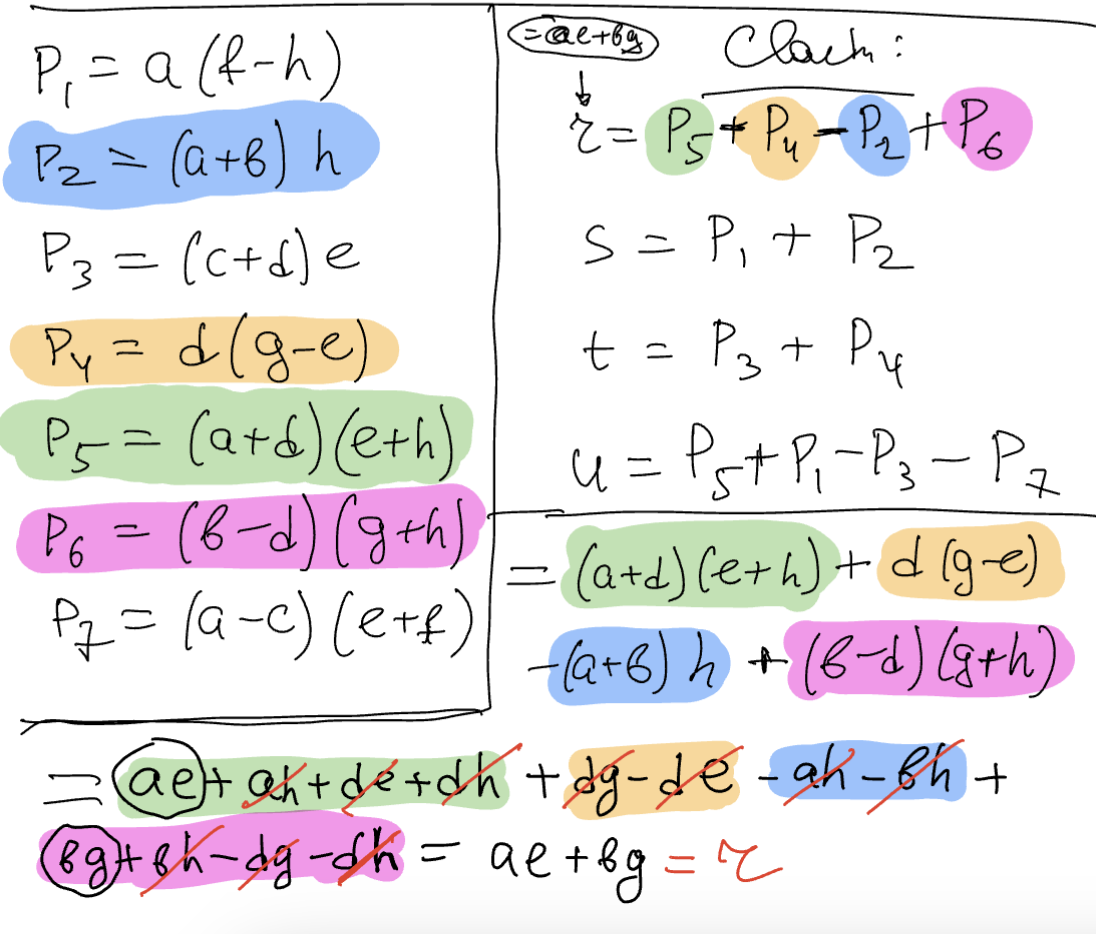 P₁ = a (f-h)
P₂ = (a+b) h
P₃ = (c+d) e
P₄ = d (g-e)
P₅ = (a+d) (e+h)
P₆ = (b-d) (g+h)
P₇ = (a-c) (e+f)
=ae+bg
Claim:
↓
r = P₅ + P₄ - P₂ + P₆
s = P₁ + P₂
t = P₃ + P₄
u = P₅ + P₁ - P₃ - P₇
= (a+d) (e+h) + d (g-e)
-(a+b) h + (b-d) (g+h)
= ae + ah + de + dh + dg - de - ah - bh +
bg + bh - dg - dh = ae + bg = r